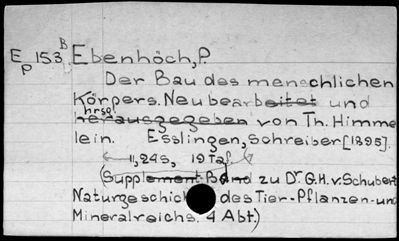 E p 153 B Ebenhöch, P.
Der Bau des menschlichen
Körpers. Neubearbeitet und
hrsg.
herausgegeben von Th. Himme
lein. Esslingen, Schreiber [1895].
11,24S, 19 Taf.
(Supplement-Band zu Dr G.H. v. Schubert
Naturgeschich des Tier-Pflanzen-und
Mineralreichs. 4 Abt.)